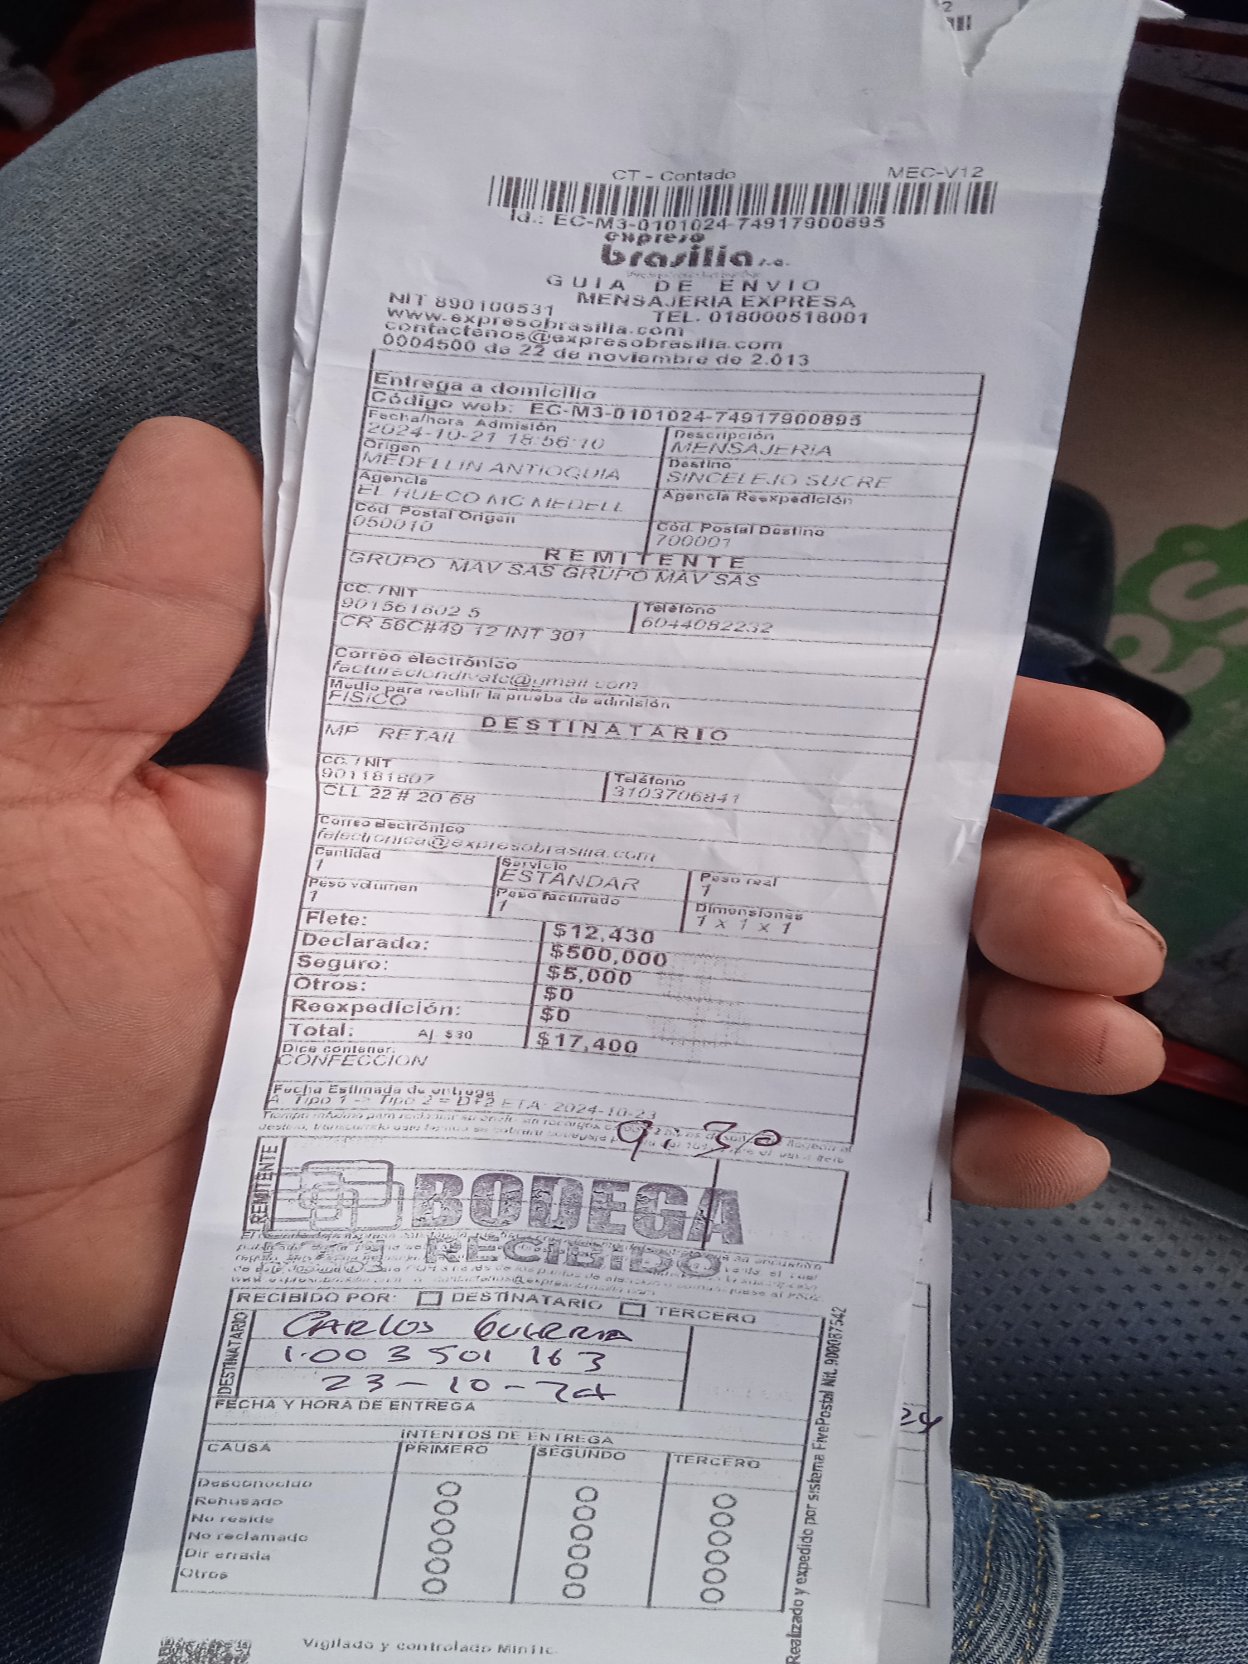 2
CT - Contado MEC-V12
Id.: EC-M3-0101024-74917900895
expreso
brasilia s.a.
GUIA DE ENVIO
NIT 890100531 MENSAJERIA EXPRESA
www.expresobrasilia.com TEL. 018000518001
contactenos@expresobrasilia.com
0004500 de 22 de noviembre de 2.013
Entrega a domicilio
Código web: EC-M3-0101024-74917900895
Fecha/hora Admisión Descripción
2024-10-21 18:56:10 MENSAJERIA
Origen Destino
MEDELLIN ANTIOQUIA SINCELEJO SUCRE
Agencia Agencia Reexpedición
EL HUECO MC MEDELL
Cód. Postal Origen Cód. Postal Destino
050010 700001
REMITENTE
GRUPO MAV SAS GRUPO MAV SAS
CC. / NIT Teléfono
901561602 5 6044082232
CR 56C#49 12 INT 301
Correo electrónico
facturaciondivatc@gmail.com
Medio para recibir la prueba de admisión
FISICO
DESTINATARIO
MP RETAIL
CC. / NIT Teléfono
901181607 3103706841
CLL 22 # 20 68
Correo electrónico
felectronica@expresobrasilia.com
Cantidad Servicio Peso real
1 ESTANDAR 1
Peso volumen Peso facturado Dimensiones
1 1 1 x 1 x 1
Flete: $12,430
Declarado: $500,000
Seguro: $5,000
Otros: $0
Reexpedición: $0
Total: Aj. $30 $17,400
Dice contener:
CONFECCION
Fecha Estimada de entrega
A. Tipo 1 -> Tipo 2 = D+2 ETA: 2024-10-23
9:30
REMITENTE
BODEGA
RECIBIDO
RECIBIDO POR: DESTINATARIO TERCERO
DESTINATARIO
CARLOS GUERRA
1.003 501 163
23-10-24
FECHA Y HORA DE ENTREGA
INTENTOS DE ENTREGA
CAUSA PRIMERO SEGUNDO TERCERO
Desconocido
Rehusado
No reside
No reclamado
Dir errada
Otros
Realizado y expedido por sistema FivePostal Nit. 900087542
24
Vigilado y controlado Mintic